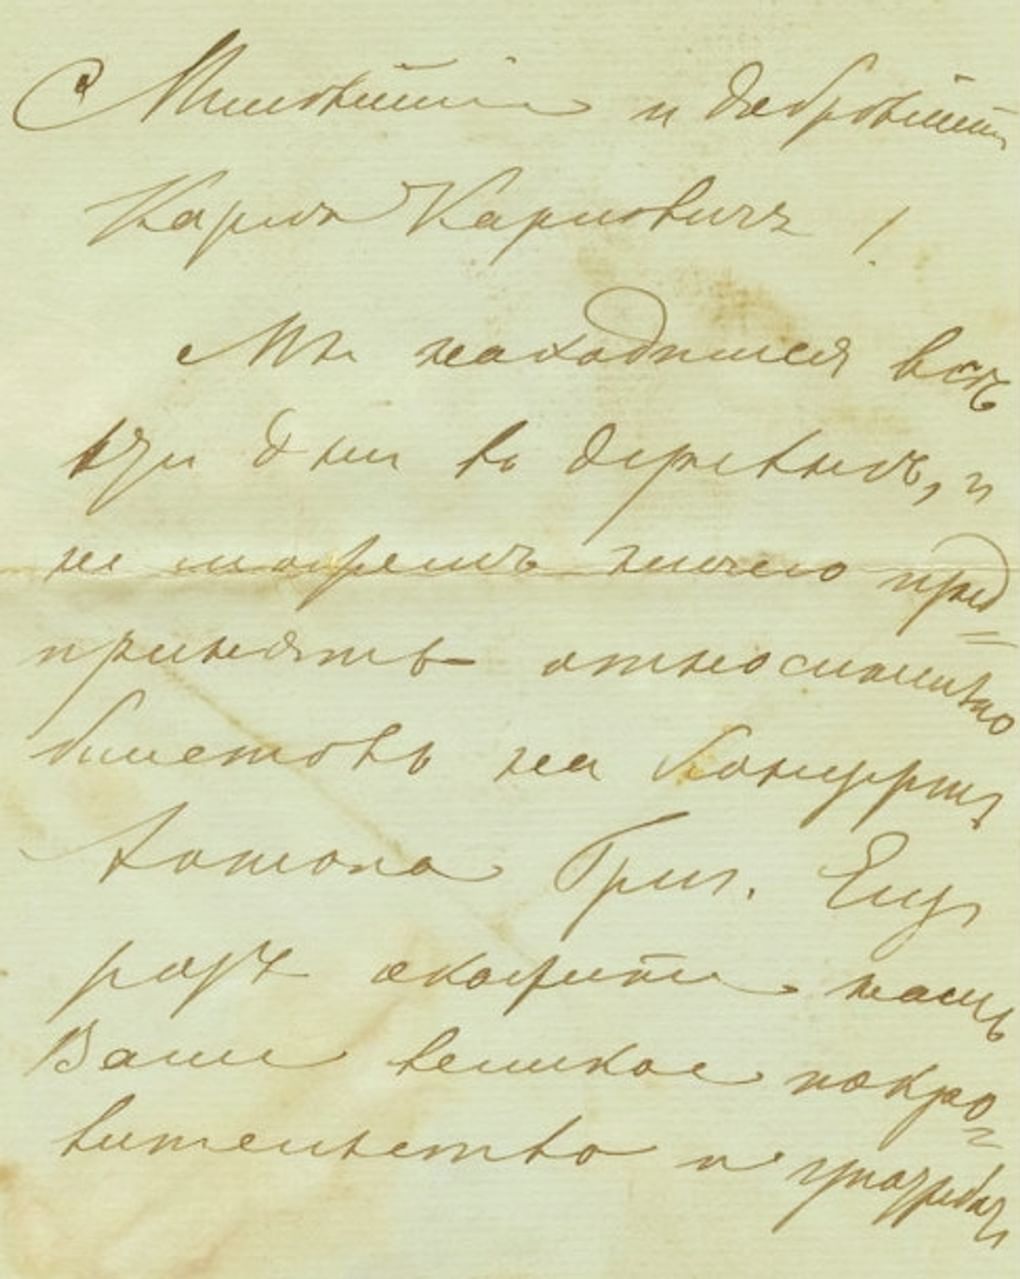 Милѣйшій и добрѣйшій
Карлъ Карловичъ!
Мы находимся всѣ
эти дни въ деревнѣ, и
не можемъ ничего пред=
принять относительно
билетовъ на концертъ
Антона Григ. Еще
разъ окажите намъ
Ваше великое покро=
вительство и